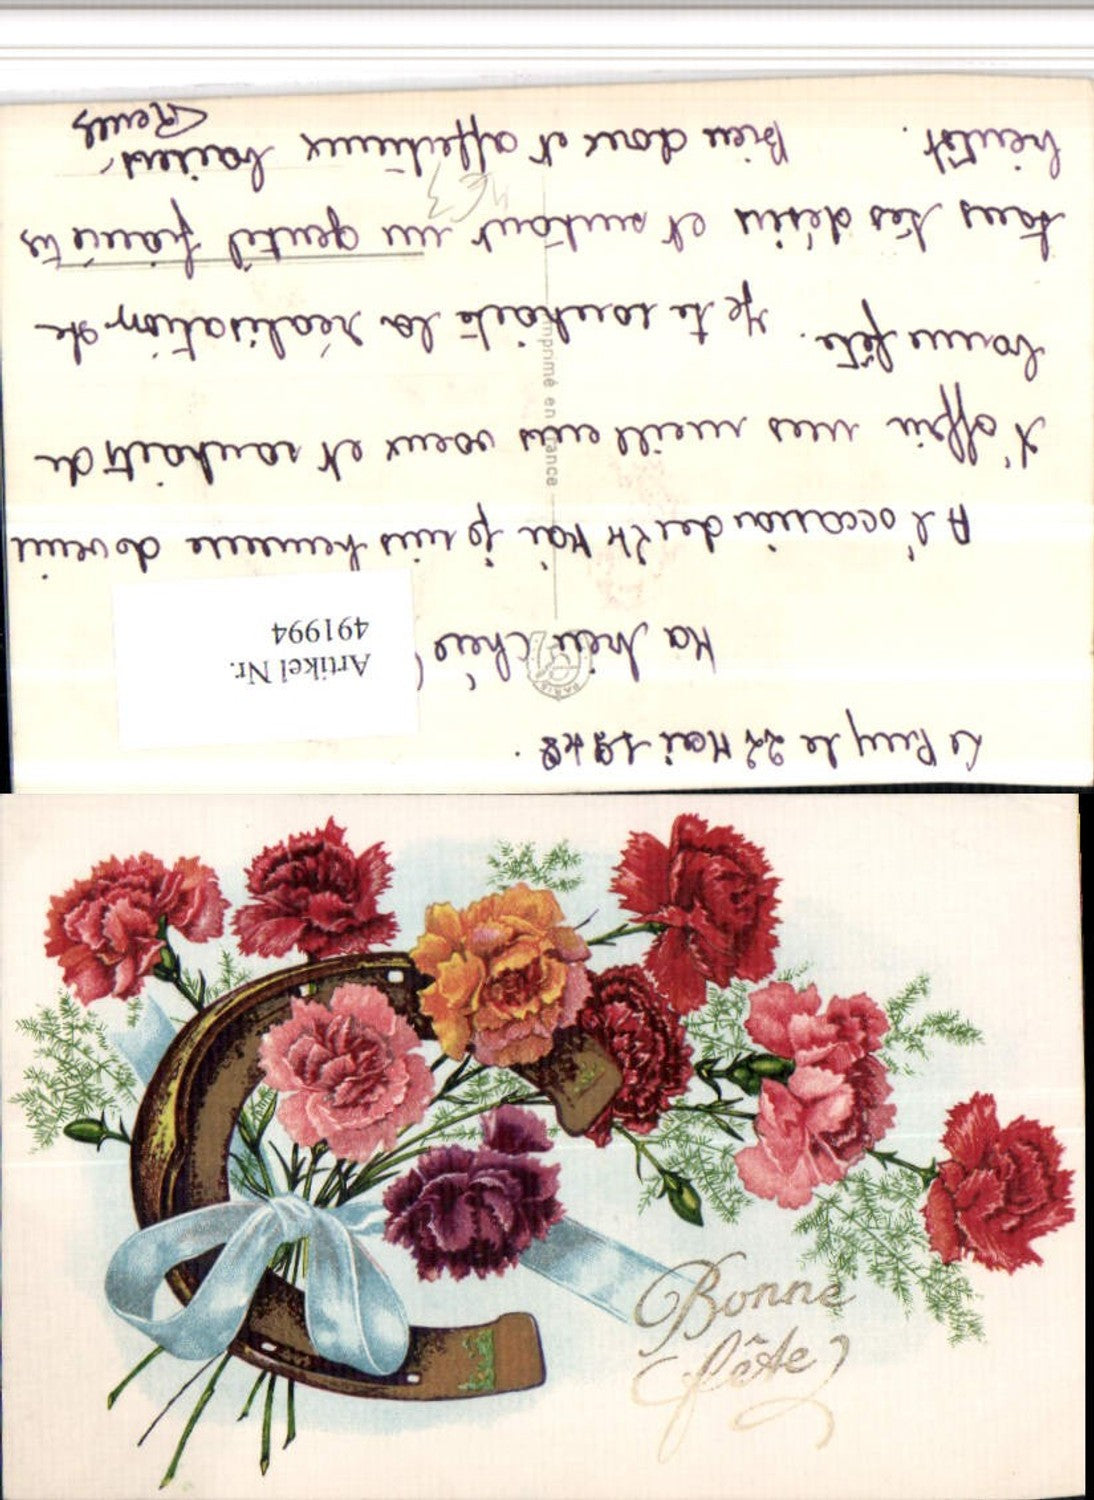 Le Puy le 22 Mai 1948.
Ma bien chère
A l'occasion du 24 Mai je suis heureuse de venir
t'offrir mes meilleurs voeux et souhaits de
bonne fête. Je te souhaite la réalisation de
tous tes désirs et surtout un gentil fiancé très
bientôt. Bien doux et affectueux baisers
Artikel Nr.
491994
PARIS
Imprimé en France
Bonne
fête